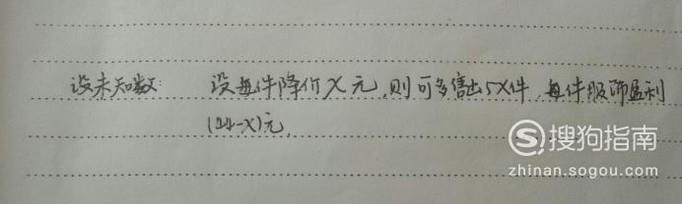 设未知数: 设每件降价x元,则可多售出5x件,每件服饰盈利
(44-x)元,
搜狗指南
zhinan.sogou.com